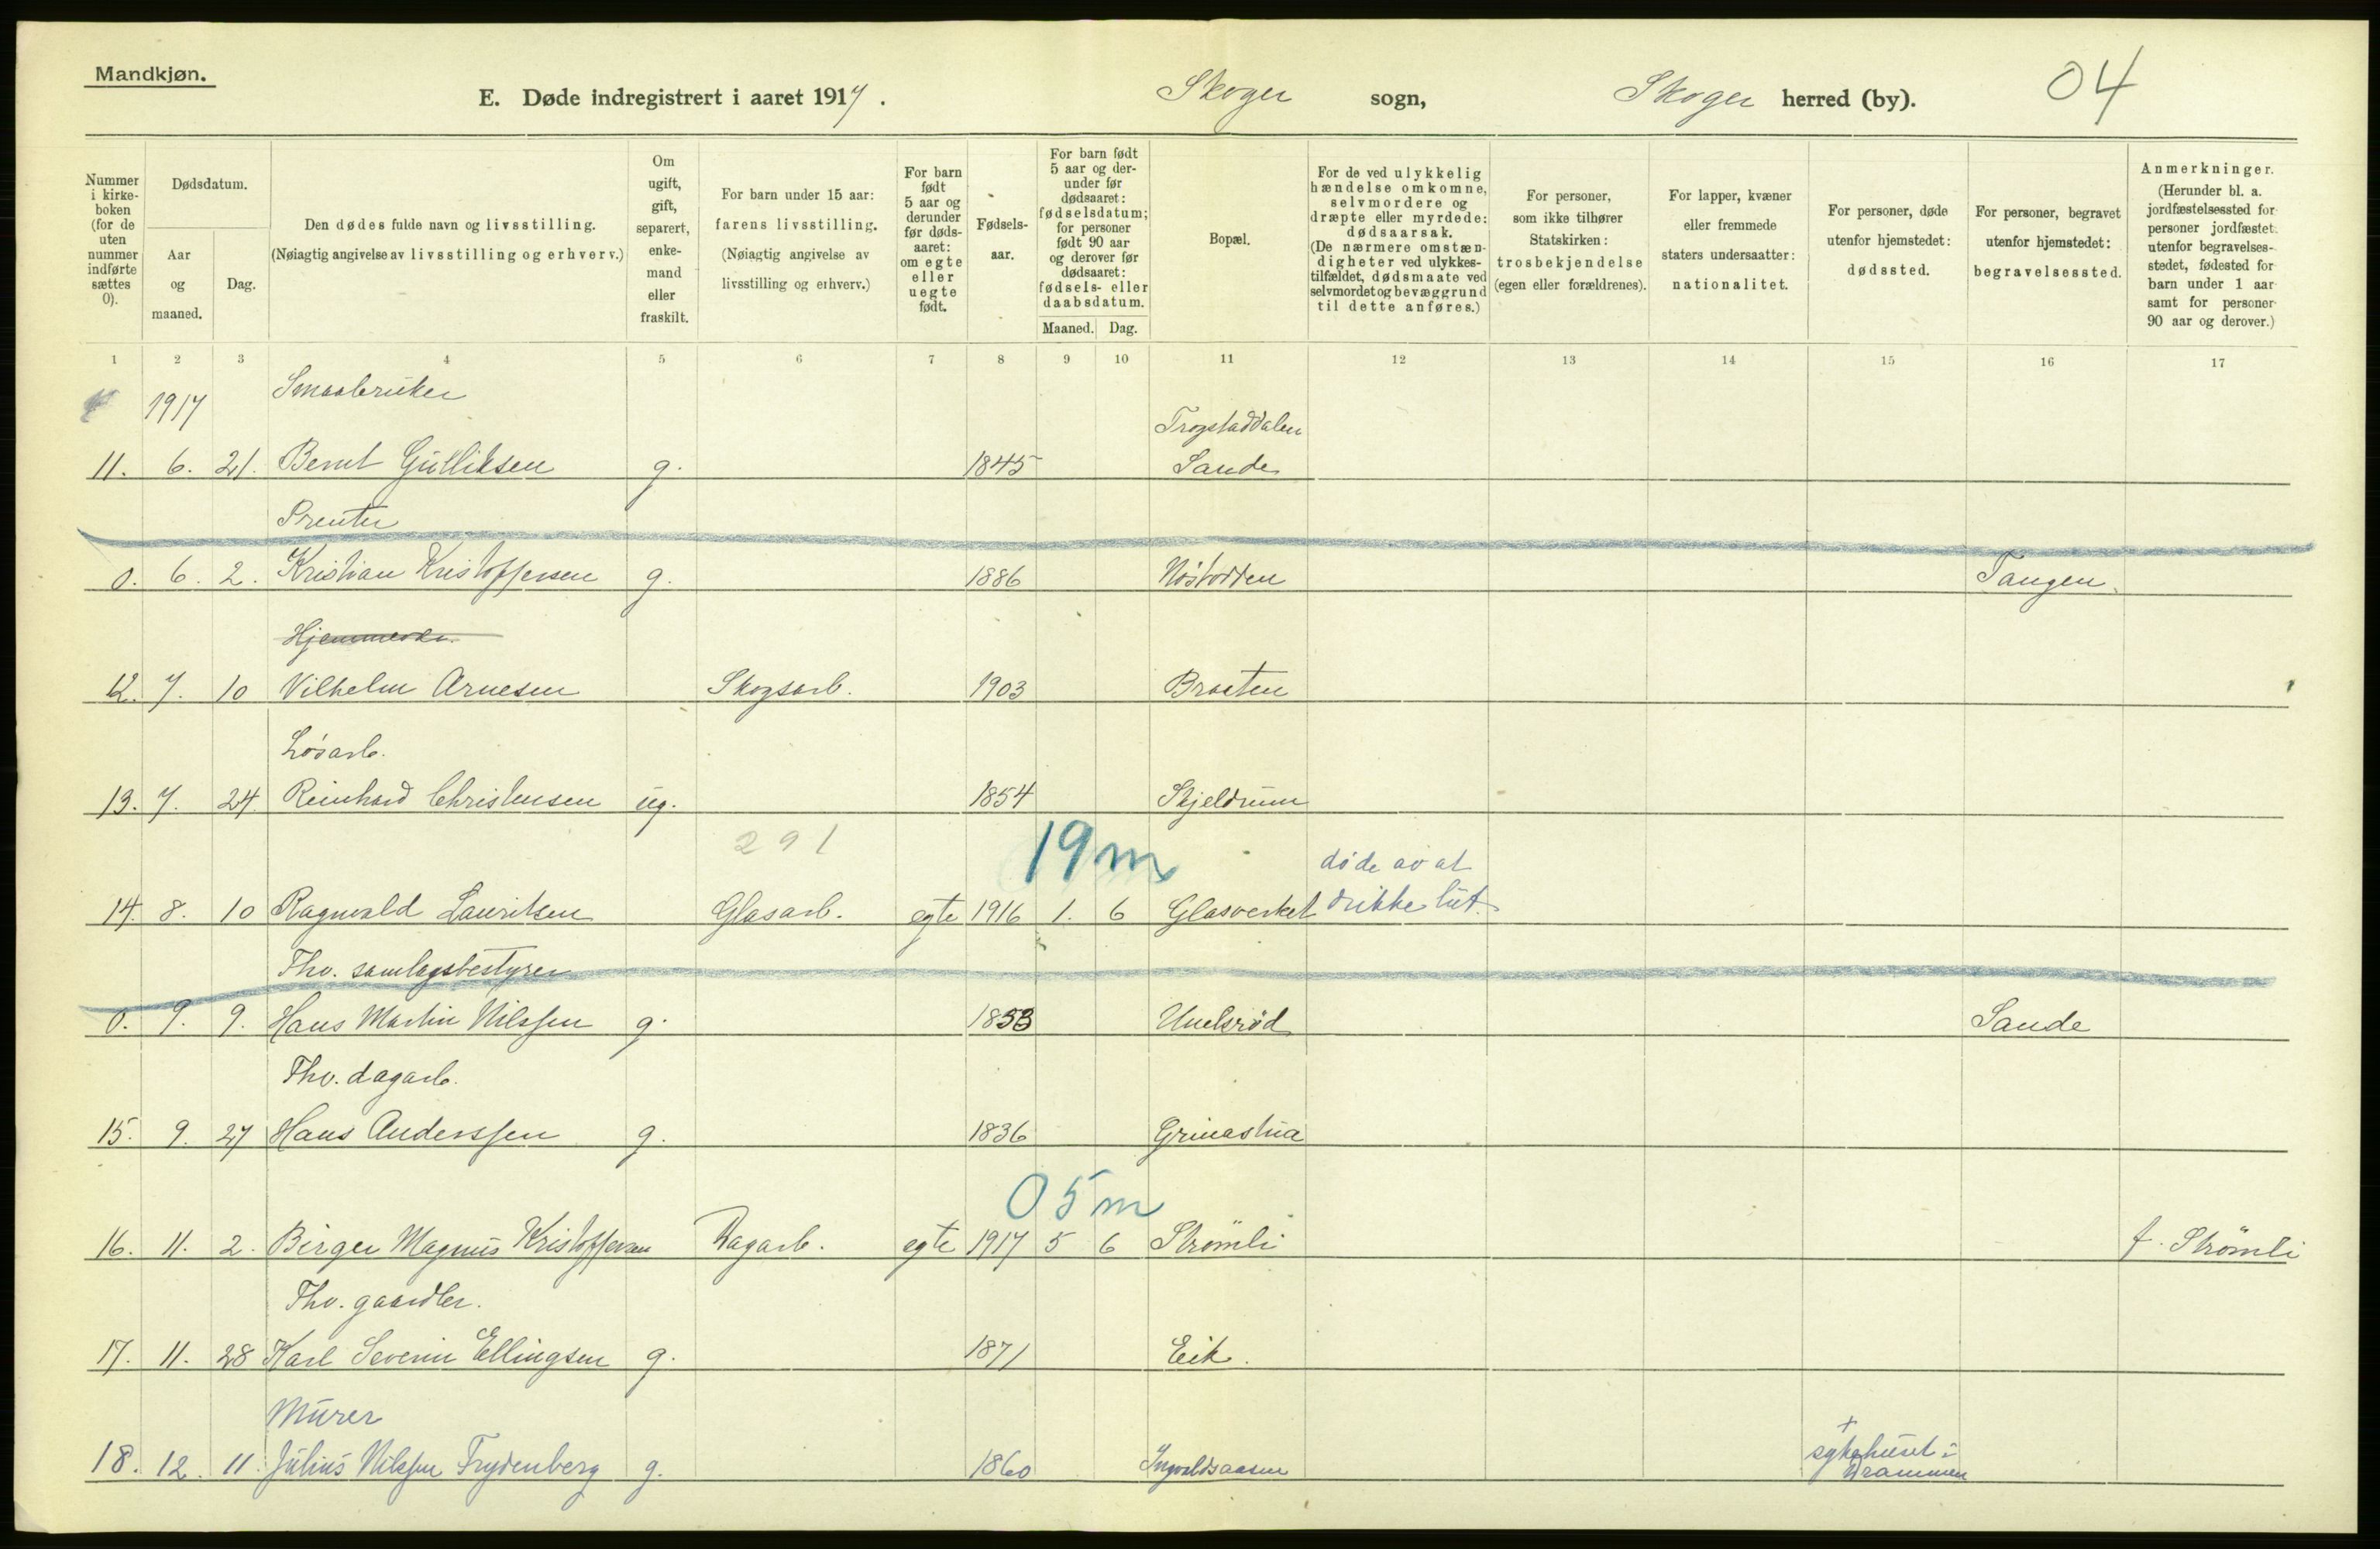 Mandkjøn.
E. Døde indregistrert i aaret 1917. Skoger sogn, Skoger herred (by). 04
Nummer i kirkeboken (for de uten nummer indførte sættes 0).
Dødsdatum.
Aar og maaned.
Dag.
Den dødes fulde navn og livsstilling.
(Nøiagtig angivelse av livsstilling og erhverv.)
Om ugift, gift, separert, enkemand eller fraskilt.
For barn under 15 aar: farens livsstilling.
(Nøiagtig angivelse av livsstilling og erhverv.)
For barn født 5 aar og derunder før dødsaaret: om egte eller uegte født.
Fødselsaar.
For barn født 5 aar og derunder før dødsaaret: fødselsdatum; for personer født 90 aar og derover før dødsaaret: fødsels- eller daabsdatum.
Maaned. Dag.
Bopæl.
For de ved ulykkelig hændelse omkomne, selvmordere og dræpte eller myrdede: dødsaarsak.
(De nærmere omstændigheter ved ulykkestilfældet, dødsmaate ved selvmordet og bevæggrund til dette anføres.)
For personer, som ikke tilhører Statskirken: trosbekjendelse (egen eller forældrenes).
For lapper, kvæner eller fremmede staters undersaatter: nationalitet.
For personer, døde utenfor hjemstedet: dødssted.
For personer, begravet utenfor hjemstedet: begravelsessted.
Anmerkninger.
(Herunder bl. a. jordfæstelsessted for personer jordfæstet utenfor begravelsesstedet, fødested for barn under 1 aar samt for personer 90 aar og derover.)
1 2 3 4 5 6 7 8 9 10 11 12 13 14 15 16 17
1917 Smaabruker
Trogstaddalen
11. 6. 21. Bernt Gulliksen g. 1845 Sande
Prenter
0. 6. 2. Kristian Kristoffersen g. 1886 Nøstodden Tangen.
12. 7. 10 Vilhelm Arnesen Skogsarb. 1903 Braaten
Løsarb.
13. 7. 24 Reinhard Christensen ug. 1854 Skjeldrum
291 19 m
døde av at
14. 8. 10 Ragnvald Lauritsen Glasarb. egte 1916 1. 6 Glasverket drikke lut.
Fhv. samlagsbestyrer
0. 9. 9. Hans Martin Nilssen g. 1853 Unelsrød Sande
Fhv. dagarb.
15. 9. 27 Hans Anderssen g. 1836 Grinastua
05 m
16. 11. 2. Birger Magnus Kristoffersen Dagarb. egte 1917 5 6 Strømli f. Strømli
Fhv. gaardbr.
17. 11. 28 Karl Severin Ellingsen g. 1871 Eik.
Murer
18. 12. 11. Julius Nilssen Frydenberg g. 1860 Ingvaldsaasen sykehuset i
Drammen